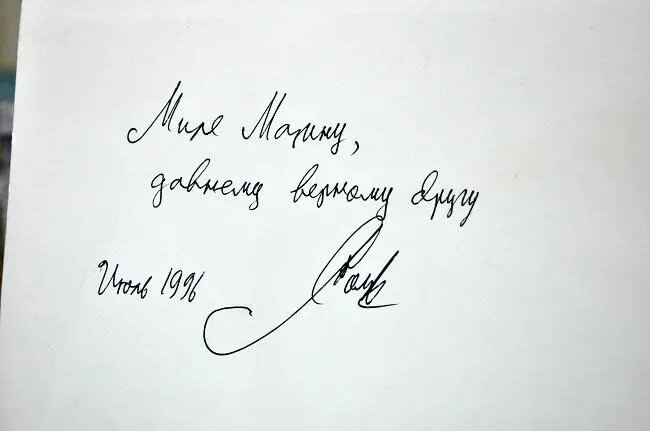 Мире Матину,
давнему верному другу
Июль 1996